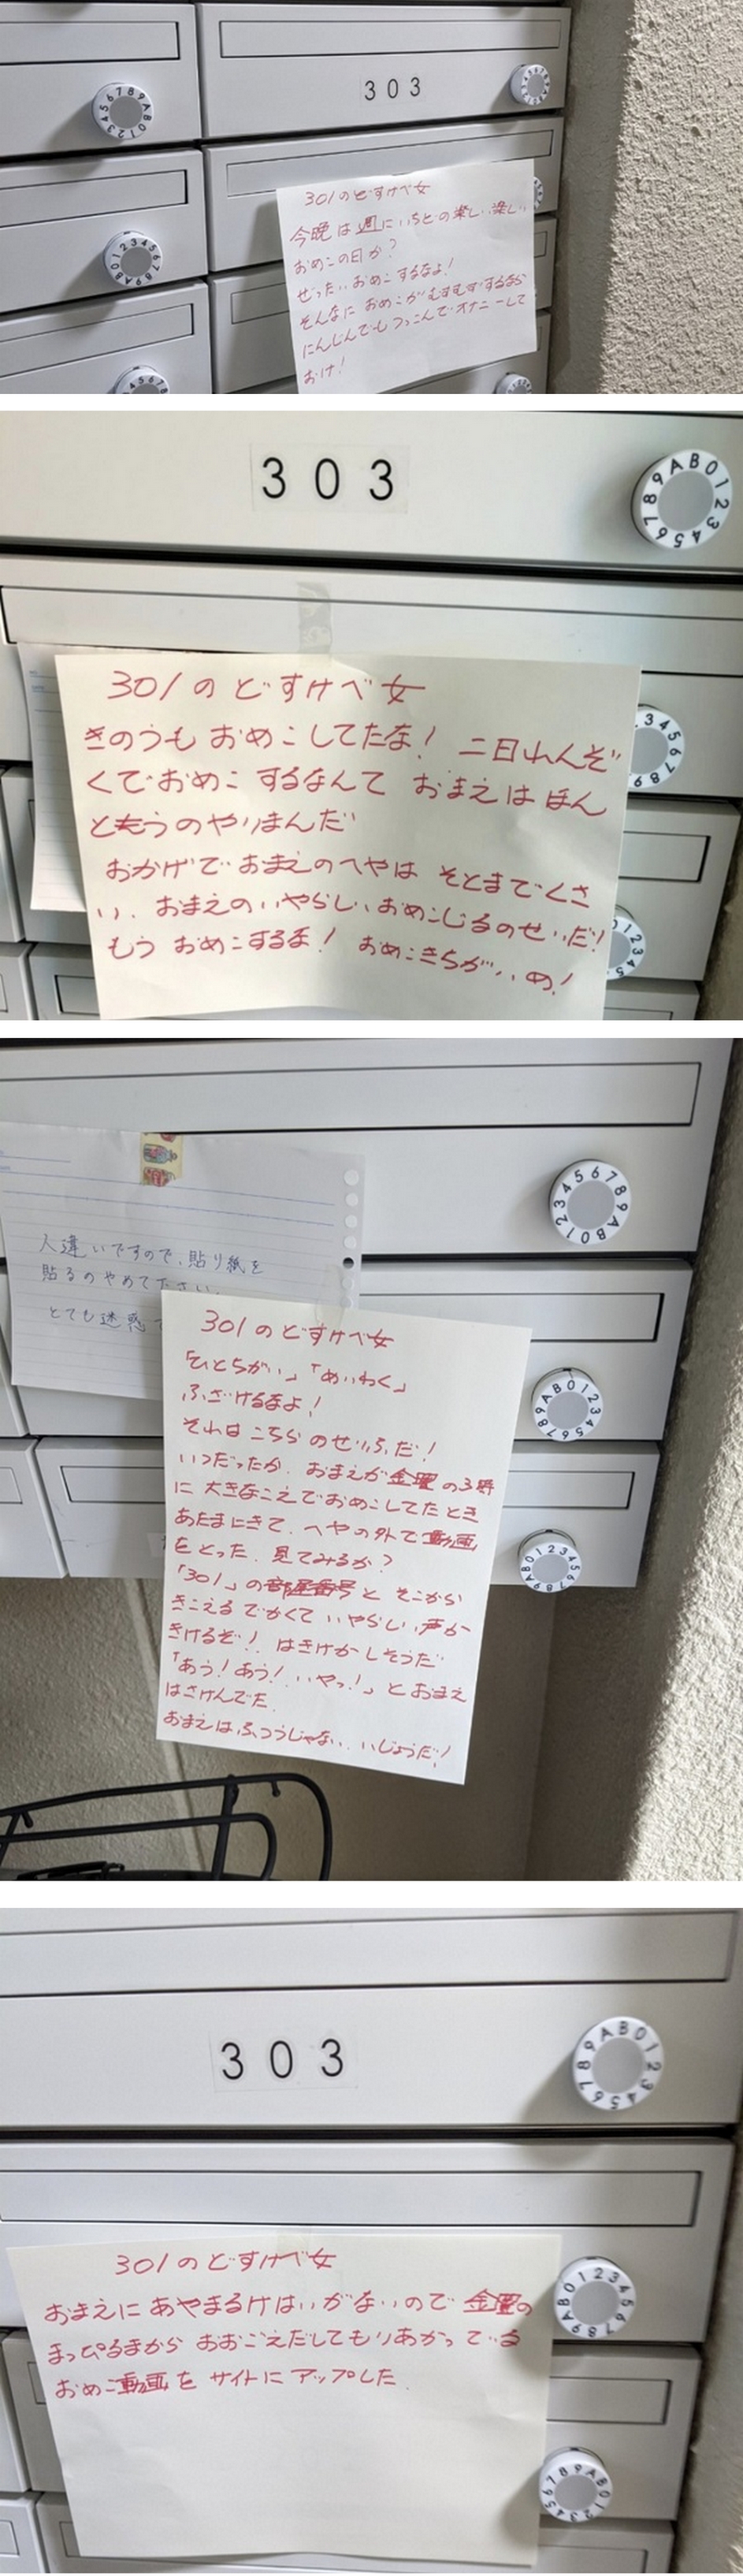 303
301のどすけべ女
今晩は週にいちどの楽しい楽しい
おめこの日か?
ぜったいおめこするなよ!
そんなに おめこがむずむずするなら
にんじんでもつっこんでオナニーして
おけ!
303
301のどすけべ女
きのうも おめこしてたな! 二日れんぞ
くで おめこ するなんて おまえは ほん
とうのやりまんだ
おかげで おまえのへやは そとまでくさ
い. おまえの いやらしい おめこじるのせいだ!
もう おめこするな! おめこきちがいめ!
人違いですので、貼り紙を
貼るのやめて下さい.
とても迷惑で
301のどすけべ女
「ひとちがい」「めいわく」
ふざけるなよ!
それは こちらのせりふだ!
いつだったか. おまえが金曜の3時
に 大きなこえでおめこしてたとき
あたまにきて. へやの外で動画
をとった. 見てみるか?
「301」の部屋番号と そこから
きこえる でかくて いやらしい声が
きけるぞ! はきけがしそうだ
「あう!あう!いやっ!」とおまえ
はさけんでた.
おまえは ふつうじゃない. いじょうだ!
303
301のどすけべ女
おまえに あやまるけはいがないので 金曜の
まっぴるまから おおごえだしてもりあがっている
おめこ動画を サイトに アップした.